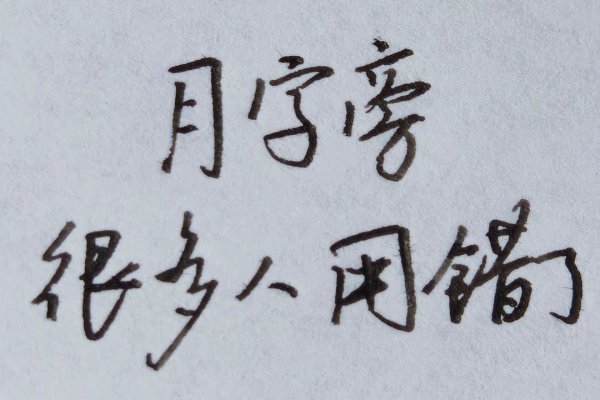 月字旁
很多人用错了